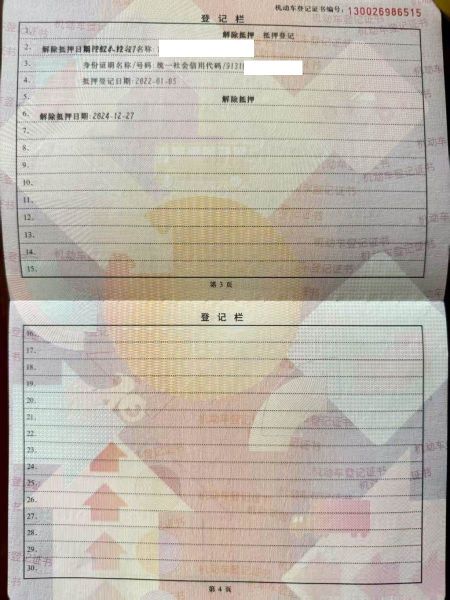 机动车登记证书编号：130026986515
登 记 栏
1. 解除抵押 抵押登记
2. 解除抵押日期 名称：
3. 身份证明名称/号码：统一社会信用代码/9131
4. 抵押登记日期：2022-01-05
5. 解除抵押
6. 解除抵押日期：2024-12-27
7.
8.
9.
10.
11.
12.
13.
14.
15.
第 3 页
登 记 栏
16.
17.
18.
19.
20.
21.
22.
23.
24.
25.
26.
27.
28.
29.
30.
第 4 页